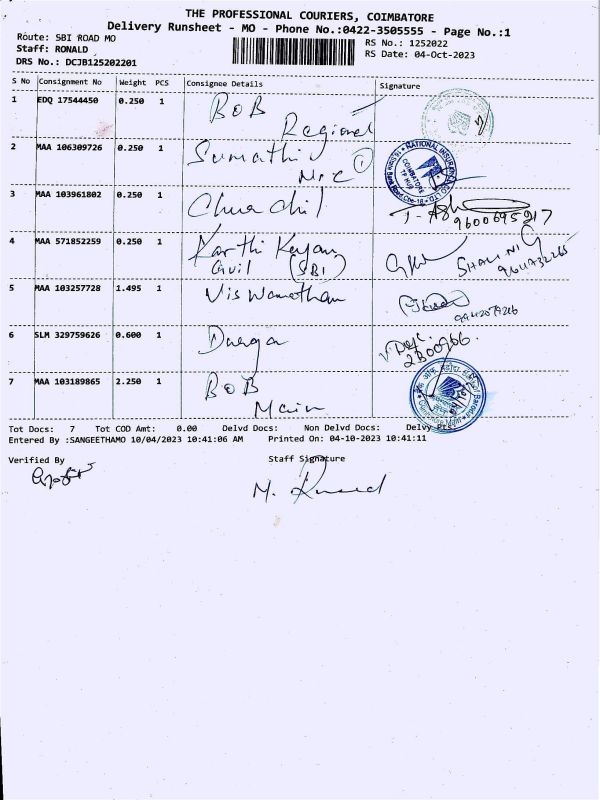 THE PROFESSIONAL COURIERS, COIMBATORE
Delivery Runsheet - MO - Phone No.:0422-3505555 - Page No.:1
Route: SBI ROAD MO
RS No.: 1252022
Staff: RONALD
RS Date: 04-Oct-2023
DRS No.: DCJB125202201
S No Consignment No Weight PCS Consignee Details Signature
1 EDQ 17544450 0.250 1 BOB
Regional
2 MAA 106309726 0.250 1 Sumathi
NATIONAL INSURANCE CO. LTD.
COIMBATORE
3 MAA 103961802 0.250 1
9600695217
4 MAA 571852259 0.250 1 Karthi Keyan
Civil (SBI)
SHALINI
5 MAA 103257728 1.495 1 Viswanathan
6 SLM 329759626 0.600 1 Durga
7 MAA 103189865 2.250 1 BOB
Main
Tot Docs: 7 Tot COD Amt: 0.00 Delvd Docs: Non Delvd Docs: Delvy PCS:
Entered By :SANGEETHAMO 10/04/2023 10:41:06 AM Printed On: 04-10-2023 10:41:11
Verified By Staff Signature